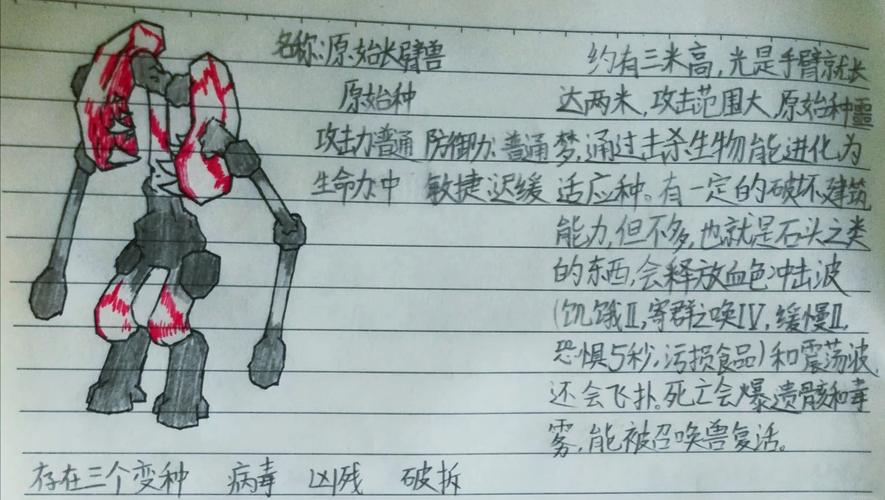 名称:原始长臂兽
原始种
攻击力普通 防御力:普通
生命力:中 敏捷:迟缓
约有三米高,光是手臂就长
达两米,攻击范围大,原始种噩
梦,通过击杀生物能进化为
适应种。有一定的破坏建筑
能力,但不多,也就是石头之类
的东西,会释放血色冲击波
(饥饿Ⅱ,寄群之唤Ⅳ,缓慢Ⅱ,
恐惧5秒,污损食品)和震荡波,
还会飞扑。死亡会爆遗骸和毒
雾,能被召唤兽复活。
存在三个变种 病毒 凶残 破拆